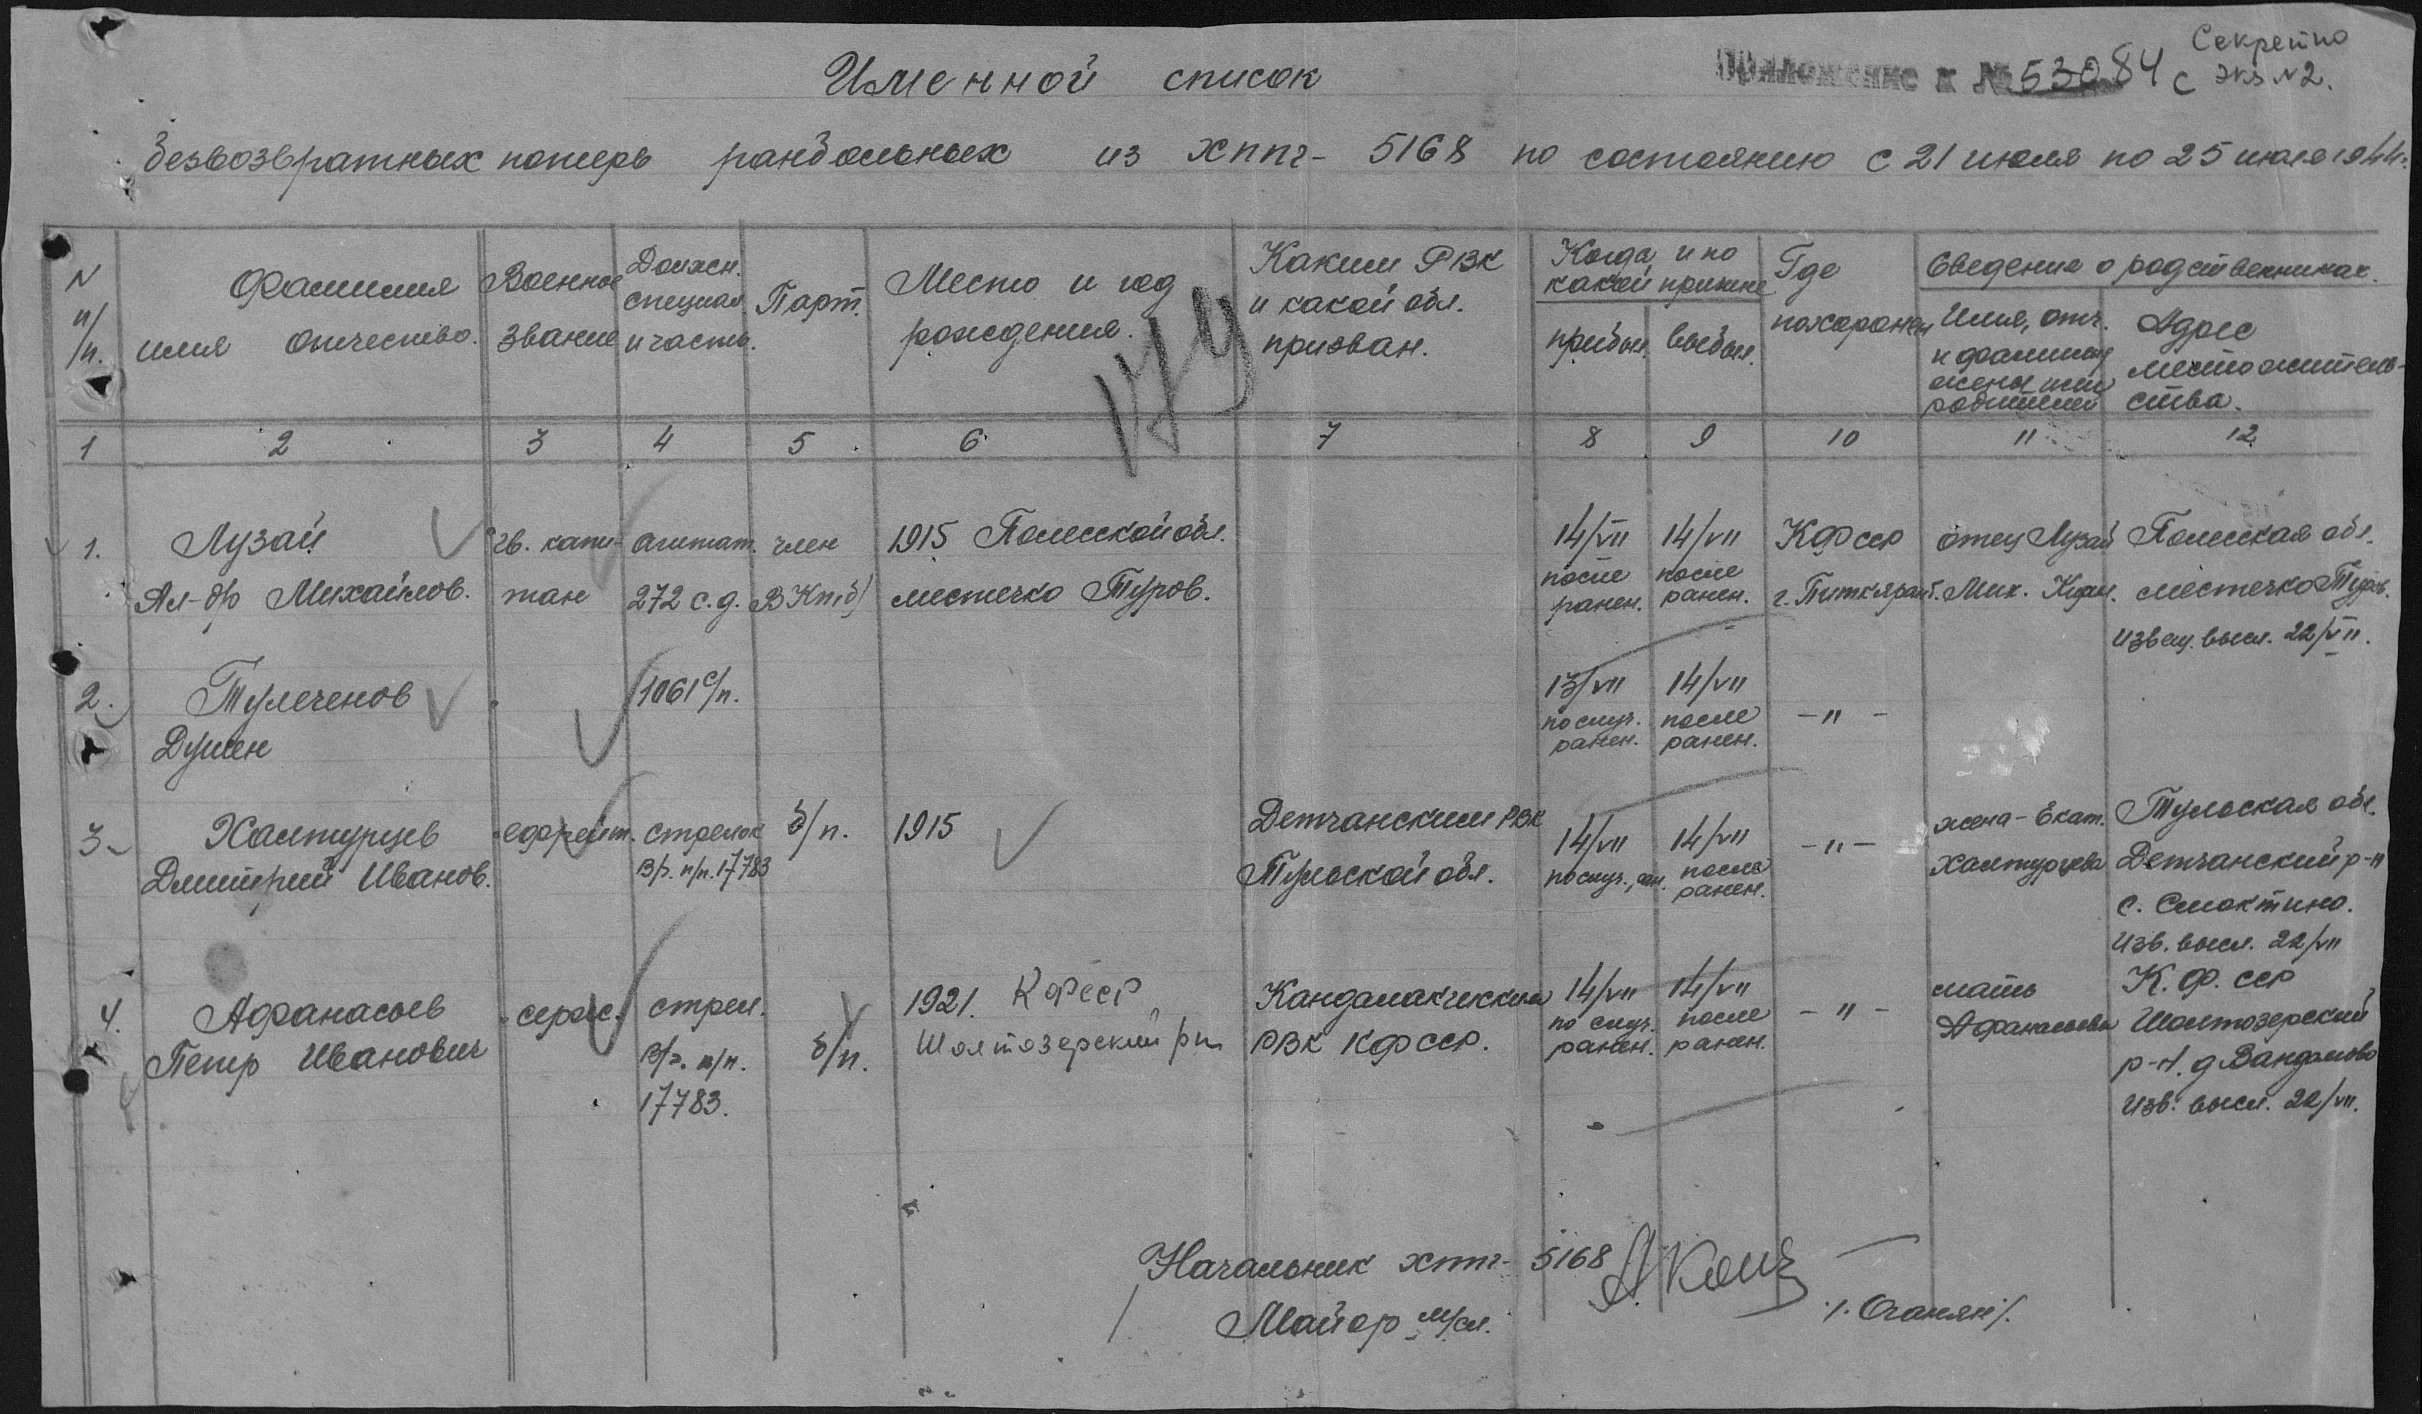 Секретно
Экз N 2.
Приложение к № 53084 с
Именной список
безвозвратных потерь ранбольных из хппг- 5168 по состоянию с 21 июля по 25 июля 1944г.
N п/п.
Фамилия
имя отчество.
Военное
звание
Должн.
специал
и часть.
Парт.
Место и год
рождения.
Каким РВК
и какой обл.
призван.
Когда и по
какой причине
прибыл
выбыл.
Где
похоронен
Сведения о родственниках.
Имя, отч.
и фамилия
жены или
родителей
Адрес
местожитель-
ства.
174
1 2 3 4 5 6 7 8 9 10 11 12
1.
Лузай
Ал-др Михайлов.
гв. капи-
тан
агитат.
272 с.д.
член
ВКП(б)
1915 Полесской обл.
местечко Туров.
14/VII
после
ранен.
14/VII
после
ранен.
КФССР
г. Питкярант.
отец Лузай
Мих.
Полесская обл.
местечко Туров.
Извещ. высл. 22/VII.
2.
Тулеченов
Душен
1061 с/п.
13/VII
по случ.
ранен.
14/VII
после
ранен.
-"-
3.
Халтурцев
Дмитрий Иванов.
ефрейт.
стрелок
В/ч. п/п. 17783
б/п.
1915
Детчанским РВК
Тульской обл.
14/VII
по случ. ран.
14/VII
после
ранен.
-"-
жена - Екат.
Халтурцева
Тульская обл.
Детчанский р-н
с. Смоктино.
Изв. высл. 22/VII
4.
Афанасьев
Петр Иванович
серж.
стрел.
В/ч. п/п.
17783.
б/п.
1921. КФССР
Шолтозерский р-н
Кандалакшским
РВК КФССР.
14/VII
по случ.
ранен.
14/VII
после
ранен.
-"-
мать
Афанасьева
К.Ф.ССР
Шолтозерский
р-н. д Вангимово
Изв. высл. 22/VII.
Начальник хппг- 5168
Майор м/сл.
/. Оганян /.